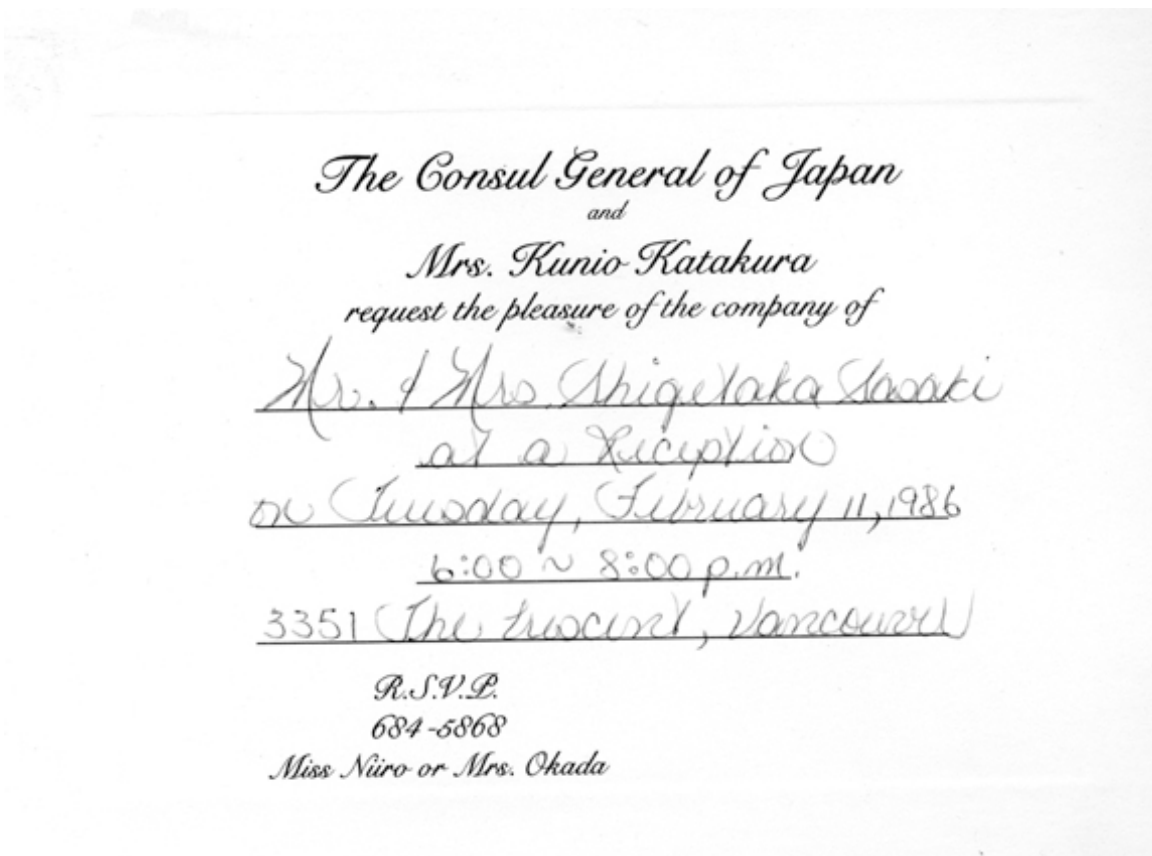 The Consul General of Japan
and
Mrs. Kunio Katakura
request the pleasure of the company of
Mr. & Mrs Shigetaka Sasaki
at a Reception
on Tuesday, February 11, 1986
6:00 ~ 8:00 p.m.
3351 The Crescent, Vancouver
R.S.V.P.
684-5868
Miss Niiro or Mrs. Okada